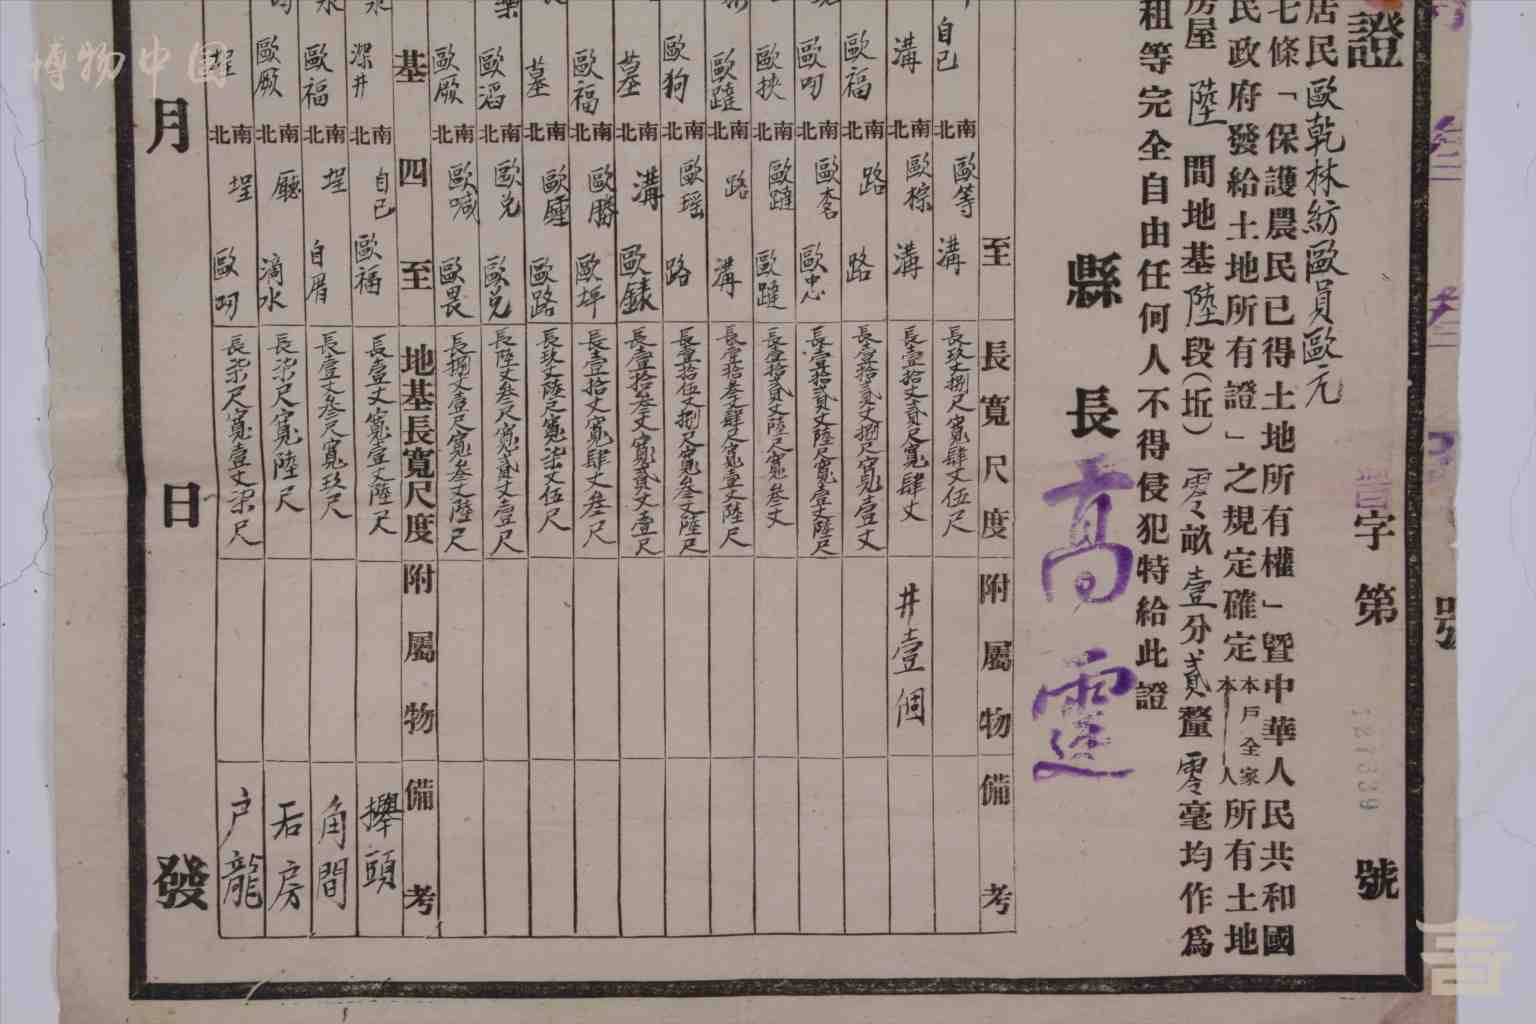 博物中国
號
證
晋字第
號
187339
居民歐乾林紡歐員歐元
七條「保護農民已得土地所有權」暨中華人民共和國
民政府發給土地所有證」之規定確定本戶全家本人所有土地
房屋陸間地基陸段(坵)零畝壹分貳釐零毫均作爲
租等完全自由任何人不得侵犯特給此證
縣長高霆
至 長寬尺度 附屬物 備考
自己 南北 歐等 溝 長玖丈捌尺寬肆丈伍尺
溝 南北 歐棕 溝 長壹拾丈貳尺寬肆丈 井壹個
歐福 南北 路 路 長壹拾貳丈捌尺寬壹丈
歐吻 南北 歐忠 長壹拾貳丈陸尺寬壹丈陸尺
歐挾 南北 歐躂 歐躂 長壹拾貳丈陸尺寬叁丈
歐躂 南北 路 溝 長壹拾叁丈肆尺寬壹丈陸尺
歐狗 南北 歐瑶 路 長壹拾伍丈捌尺寬叁丈陸尺
墓 南北 溝 歐銶 長壹拾叁丈寬貳丈壹尺
歐福 南北 歐勝 歐坪 長壹拾丈寬肆丈叁尺
墓 南北 歐路 長玖丈陸尺寬柒丈伍尺
歐滔 南北 歐兑 歐兑 長陸丈叁尺寬貳丈壹尺
歐厰 南北 歐喊 歐畏 長捌丈壹尺寬叁丈陸尺
基四至 地基長寬尺度 附屬物 備考
深井 南北 自己 歐福 長壹丈寬壹丈陸尺 攑頭
歐福 南北 埕 自厝 長壹丈叁尺寬玖尺 角間
歐厰 南北 廳 滴水 長柒尺寬陸尺 后房
埕 南北 埕 歐吻 長柒尺寬壹丈柒尺 户龍
月 日 發